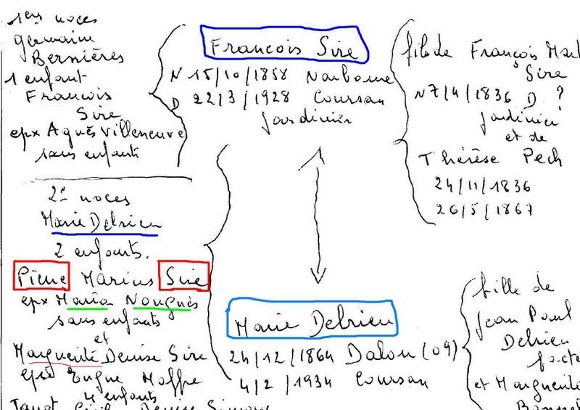 1ers noces
germaine
Bernières
1 enfant
François
Sire
epx Agnès Villeneuve
sans enfants
2e noces
Marie Delrieu
2 enfants.
Pierre Marius Sire
epx Maria Nougués
sans enfants
et
Marguerite Denise Sire
4 enfants
François Sire
N 15/10/1858 Narbonne
D 22/3/1928 Coursan
Jardinier
Marie Delrieu
24/12/1864 Dalou (09)
4/2/1934 Coursan
fils de François
Sire
N 7/4/1836 D ?
Jardinier
et de
Thérèse Pech
24/11/1836
26/5/1867
fille de
Jean Paul
Delrieu
et Marguerite